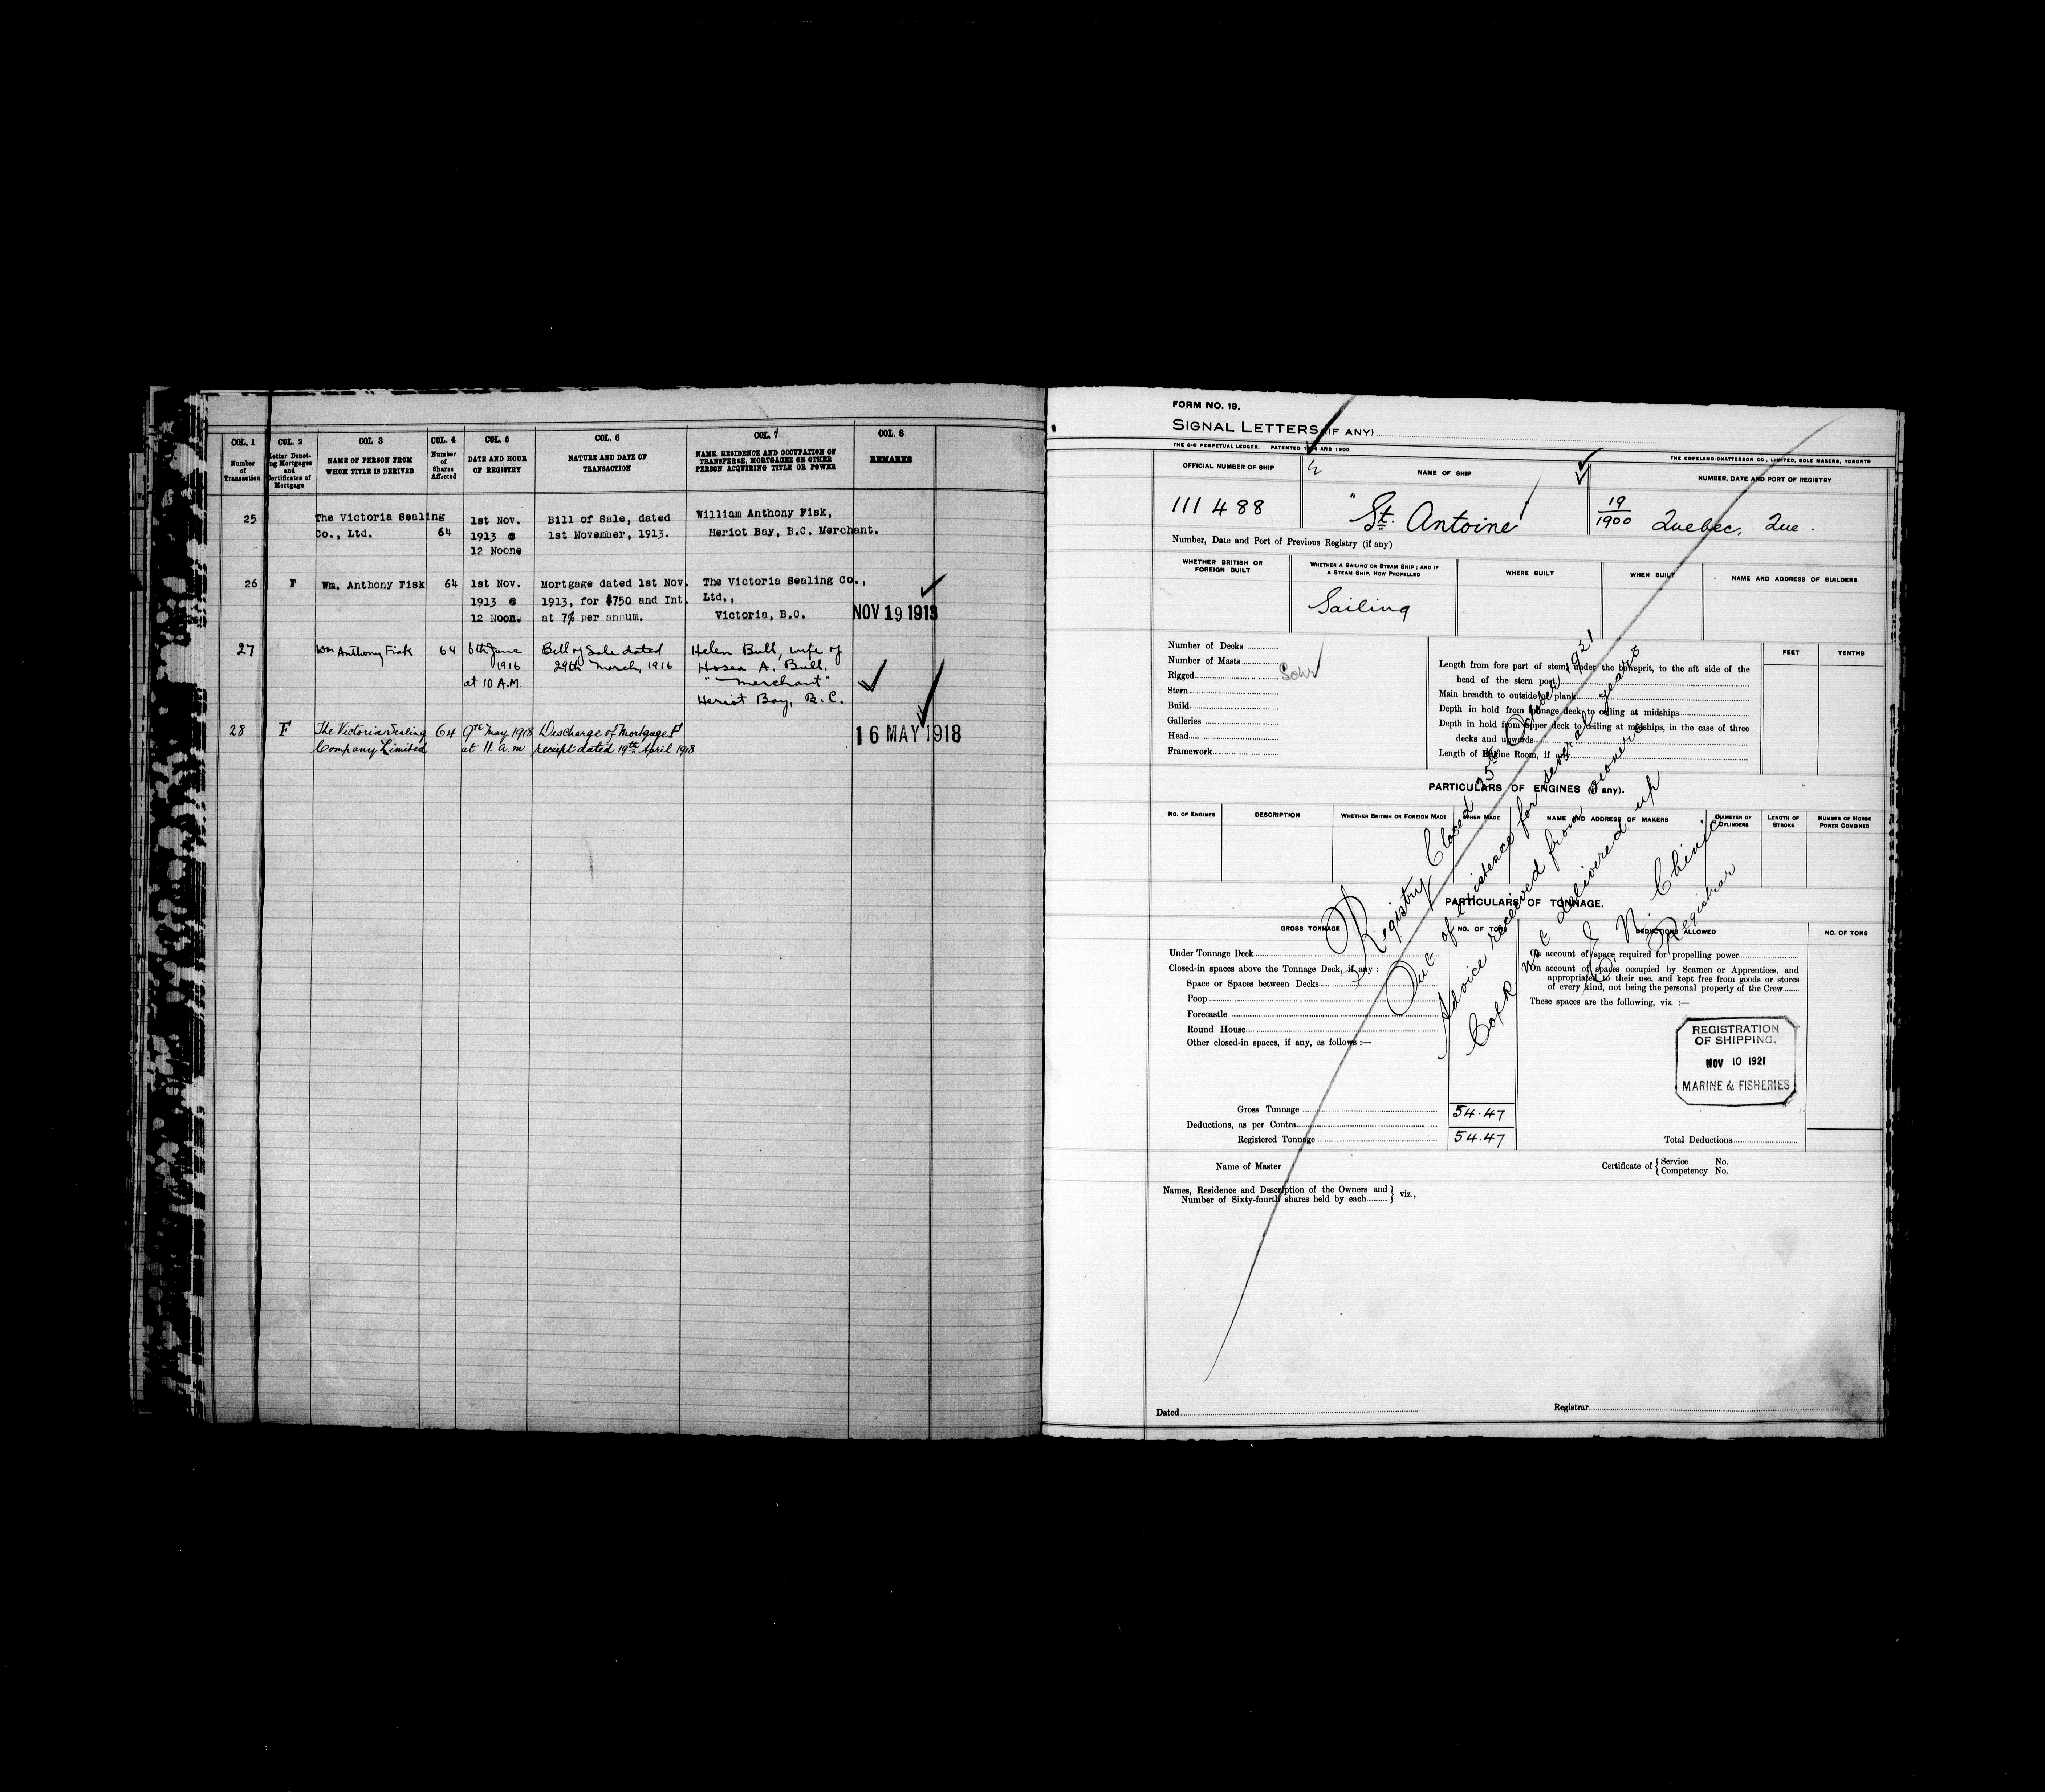 COL. 1 COL. 2 COL. 3 COL. 4 COL. 5 COL. 6 COL. 7 COL. 8
Number of Transaction
Letter Denoting Mortgages and Certificates of Mortgage
NAME OF PERSON FROM WHOM TITLE IS DERIVED
Number of Shares Affected
DATE AND HOUR OF REGISTRY
NATURE AND DATE OF TRANSACTION
NAME, RESIDENCE AND OCCUPATION OF TRANSFEREE, MORTGAGEE OR OTHER PERSON ACQUIRING TITLE OR POWER
REMARKS
25 The Victoria Sealing 1st Nov. Bill of Sale, dated William Anthony Fisk,
Co., Ltd. 64 1913 @ 1st November, 1913. Heriot Bay, B.C. Merchant.
12 Noone
26 F Wm. Anthony Fisk 64 1st Nov. Mortgage dated 1st Nov. The Victoria Sealing Co.,
1913 @ 1913, for $750 and Int. Ltd.,
12 Noon. at 7% per annum. Victoria, B.C. NOV 19 1913
27 Wm Anthony Fisk 64 6th June Bill of Sale dated Helen Bull, wife of
1916 29th March, 1916 Hosea A. Bull,
at 10 A.M. "merchant"
Heriot Bay, B.C.
28 F The Victoria Sealing 64 9th May 1918 Discharge of Mortgage F 16 MAY 1918
Company Limited at 11 a.m receipt dated 19th April 1918
FORM NO. 19.
SIGNAL LETTERS (IF ANY)
THE C-C PERPETUAL LEDGER. PATENTED AND 1900
THE COPELAND-CHATTERSON CO., LIMITED, SOLE MAKERS, TORONTO
OFFICIAL NUMBER OF SHIP NAME OF SHIP NUMBER, DATE AND PORT OF REGISTRY
111488 "St. Antoine" 19/1900 Quebec, Que.
Number, Date and Port of Previous Registry (if any)
WHETHER BRITISH OR FOREIGN BUILT
WHETHER A SAILING OR STEAM SHIP; AND IF A STEAM SHIP, HOW PROPELLED
WHERE BUILT
WHEN BUILT
NAME AND ADDRESS OF BUILDERS
Sailing
Number of Decks
Number of Masts
Rigged Schr
Stern
Build
Galleries
Head
Framework
FEET TENTHS
Length from fore part of stem, under the bowsprit, to the aft side of the
head of the stern post
Main breadth to outside of plank
Depth in hold from tonnage deck to ceiling at midships
Depth in hold from upper deck to ceiling at midships, in the case of three
decks and upwards
Length of Engine Room, if any
PARTICULARS OF ENGINES (if any).
NO. OF ENGINES DESCRIPTION WHETHER BRITISH OR FOREIGN MADE WHEN MADE NAME AND ADDRESS OF MAKERS DIAMETER OF CYLINDERS LENGTH OF STROKE NUMBER OF HORSE POWER COMBINED
PARTICULARS OF TONNAGE.
GROSS TONNAGE NO. OF TONS DEDUCTIONS ALLOWED NO. OF TONS
Under Tonnage Deck
Closed-in spaces above the Tonnage Deck, if any :
Space or Spaces between Decks
Poop
Forecastle
Round House
Other closed-in spaces, if any, as follows :—
On account of space required for propelling power
On account of spaces occupied by Seamen or Apprentices, and
appropriated to their use, and kept free from goods or stores
of every kind, not being the personal property of the Crew
These spaces are the following, viz. :—
Registry Closed 25th October 1921
Out of existence for several years
Advice received from owners
Cofr not delivered up
N. Chinic
Registrar
REGISTRATION
OF SHIPPING.
NOV 10 1921
MARINE & FISHERIES
Gross Tonnage 54.47
Deductions, as per Contra
Registered Tonnage 54.47
Total Deductions
Name of Master
Certificate of { Service No.
Competency No.
Names, Residence and Description of the Owners and
Number of Sixty-fourth shares held by each } viz.,
Dated
Registrar